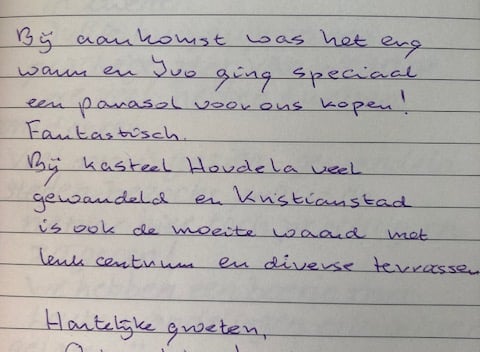 Bij aankomst was het erg
warm en Ivo ging speciaal
een parasol voor ons kopen!
Fantastisch.
Bij kasteel Hovdela veel
gewandeld en Kristianstad
is ook de moeite waard met
leuk centrum en diverse terrassen
Hartelijke groeten,